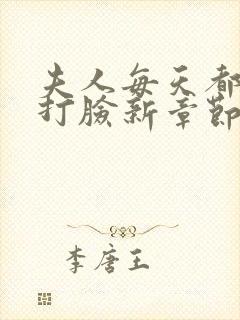 夫人每天都
打臉新章節
李唐王